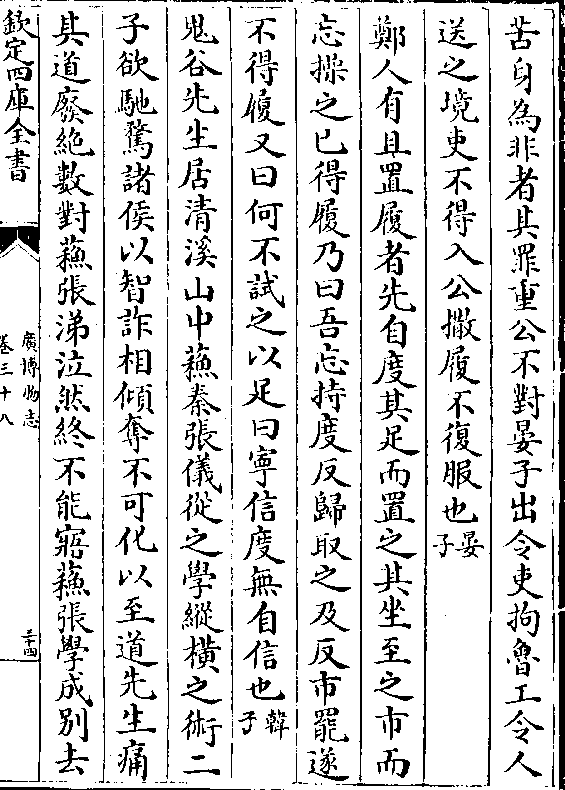 苦身為非者其罪重公不對晏子出令吏拘魯工令人
送之境吏不得入公撤履不復服也晏子
鄭人有且置履者先自度其足而置之其坐至之市而
忘操之已得履乃曰吾忘持度反歸取之及反市罷遂
不得履又曰何不試之以足曰寧信度無自信也韓子
鬼谷先生居清溪山中蘓秦張儀從之學縱橫之術二
子欲馳騖諸侯以智詐相傾奪不可化以至道先生痛
其道廢絶數對蘓張涕泣然終不能寤蘓張學成别去
欽定四庫全書
廣博物志
卷三十八
二十四